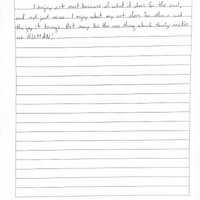 I enjoy art most because of what it does for the soul,
and not just mine. I enjoy what my art does for others and
the joy it brings. Art may be the one thing which truly makes
us HUMAN!